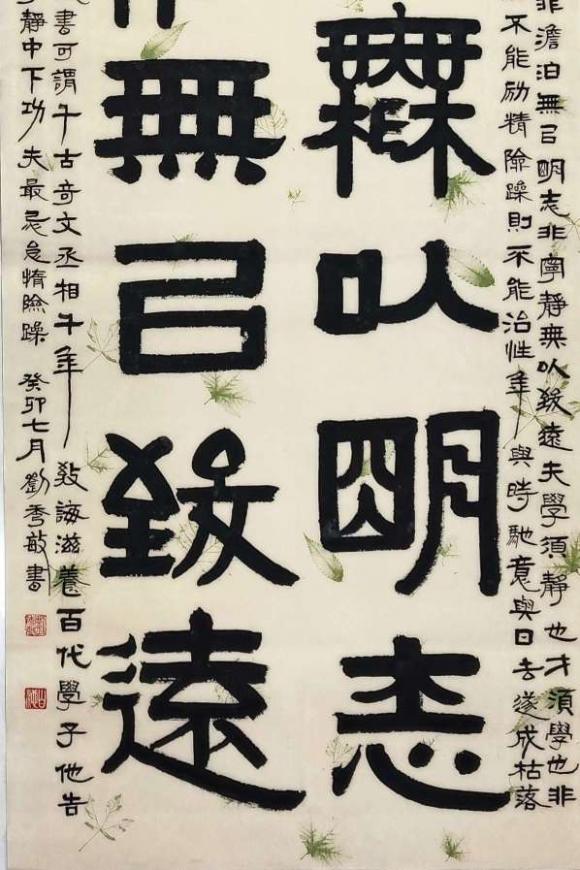 非澹泊無以明志非寧靜無以致遠夫學須靜也才須學也非
不能励精險躁則不能治性年與時馳意與日去遂成枯落
無以明志
無以致遠
書可謂千古奇文丞相千年教誨滋養百代學子他告
靜中下功夫最忌怠惰險躁 癸卯七月劉秀敏書